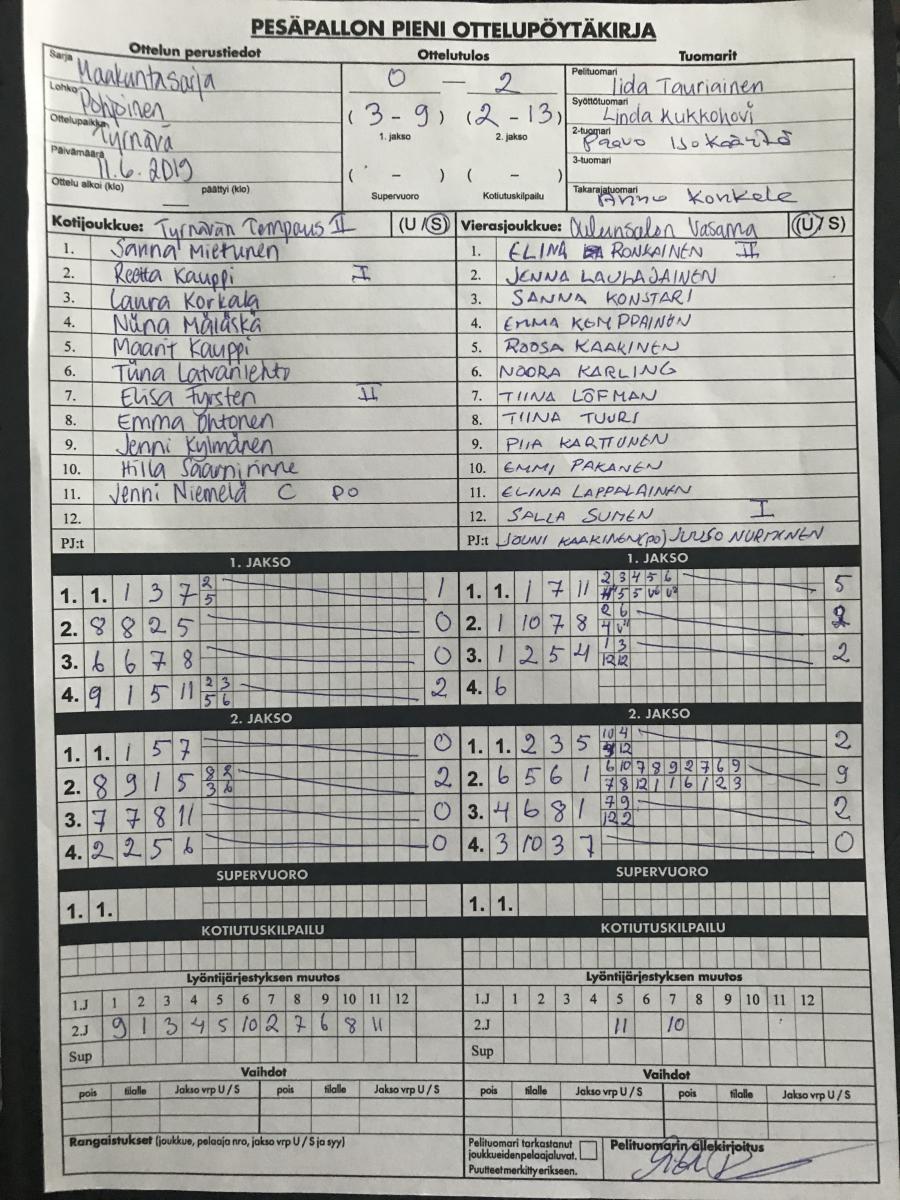 PESÄPALLON PIENI OTTELUPÖYTÄKIRJA
Ottelun perustiedot
Sarja Maakuntasarja
Lohko Pohjoinen
Ottelupaikka Tyrnävä
Päivämäärä 11.6.2019
Ottelu alkoi (klo) päättyi (klo)
Ottelutulos
0 — 2
(3 - 9) (2 - 13)
1. jakso 2. jakso
( - ) ( - )
Supervuoro Kotiutuskilpailu
Tuomarit
Pelituomari Iida Tauriainen
Syöttötuomari Linda Kukkohovi
2-tuomari Paavo
3-tuomari
Takarajatuomari Konkele
Kotijoukkue: Tyrnävän Tempaus II (U / S)
1. Sanna Mietunen
2. Reetta Kauppi I
3. Laura Korkala
4. Niina Määskä
5. Maarit Kauppi
6. Tiina Latvanlehto
7. Elisa Fyrsten II
8. Emma Ohtonen
9. Jenni Kylmänen
10. Hilla Saarnirinne
11. Jenni Niemelä C PO
12.
PJ:t
Vierasjoukkue: Oulunsalon Vasama (U / S)
1. ELINA RONKAINEN II
2. JENNA LAULAJAINEN
3. SANNA KONSTARI
4. EMMA KEMPPAINEN
5. ROOSA KAAKINEN
6. NOORA KARLING
7. TIINA LÖFMAN
8. TIINA TUURI
9. PIIA KARTTUNEN
10. EMMI PAKANEN
11. ELINA LAPPALAINEN
12. SALLA SUMEN I
PJ:t JOUNI KAAKINEN(PO) JUUSO NURMINEN
1. JAKSO
1. 1. 1 3 7 2 1
5
2. 8 8 2 5 0
3. 6 6 7 8 0
4. 9 1 5 11 2 3 2
5 6
1. JAKSO
1. 1. 1 7 11 2 3 4 5 6 5
5 5
2. 1 10 7 8 2 6 2
4
3. 1 2 5 4 1 3 2
12 12
4. 6
2. JAKSO
1. 1. 1 5 7 0
2. 8 9 1 5 8 2 2
3 6
3. 7 7 8 11 0
4. 2 2 5 6 0
2. JAKSO
1. 1. 2 3 5 10 4 2
12
2. 6 5 6 1 6 10 7 8 9 2 7 6 9 9
7 8 12 1 1 6 1 2 3
3. 4 6 8 1 7 9 2
12 2
4. 3 10 3 7 0
SUPERVUORO
1. 1.
SUPERVUORO
1. 1.
KOTIUTUSKILPAILU
KOTIUTUSKILPAILU
Lyöntijärjestyksen muutos
1.J 1 2 3 4 5 6 7 8 9 10 11 12
2.J 9 1 3 4 5 10 2 7 6 8 11
Sup
Lyöntijärjestyksen muutos
1.J 1 2 3 4 5 6 7 8 9 10 11 12
2.J 11 10
Sup
Vaihdot
pois tilalle Jakso vrp U / S pois tilalle Jakso vrp U / S
Vaihdot
pois tilalle Jakso vrp U / S pois tilalle Jakso vrp U / S
Rangaistukset (joukkue, pelaaja nro, jakso vrp U / S ja syy)
Pelituomari tarkastanut
joukkueiden pelaajaluvat.
Puutteet merkitty erikseen.
Pelituomarin allekirjoitus